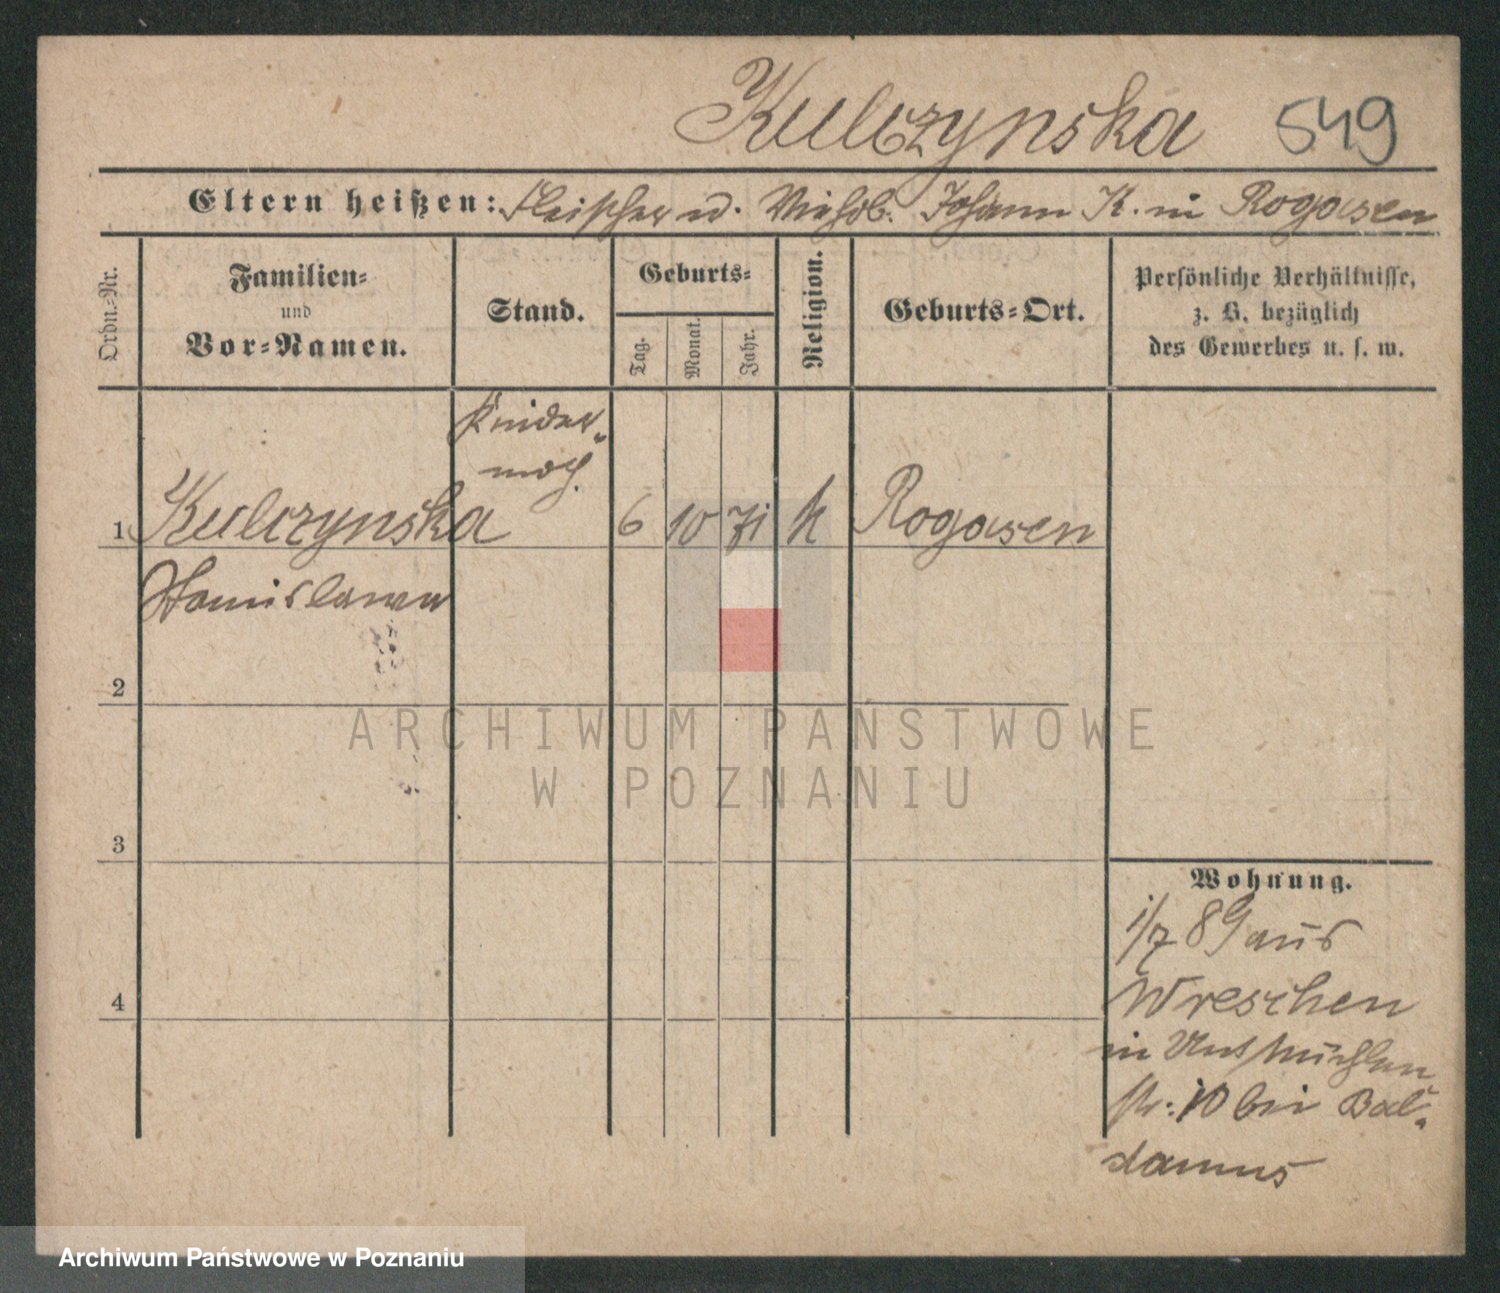 Kulczynska 549
Eltern heißen: Fleischer u. Viehdl. Johann K. in Rogasen
Ordn.-Nr.
Familien-
und
Vor-Namen.
Stand.
Geburts-
Tag.
Monat.
Jahr.
Religion.
Geburts-Ort.
Persönliche Verhältnisse,
z. B. bezüglich
des Gewerbes u. s. w.
Kinder-
mdch.
1 Kulczynska 6 10 71 k Rogasen
Stanislawa
2
3
4
Wohnung.
1/7 89 aus
Wreschen
in
str. 10 bei Bal-
damus
ARCHIWUM PAŃSTWOWE
W POZNANIU
Archiwum Państwowe w Poznaniu